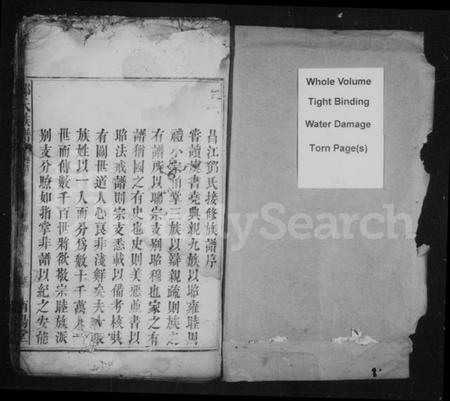 昌江鄧氏接修族譜序
嘗讀漢書堯典親九族以昭雍睦周
禮小宗伯掌三族以辨親疏則族之
有譜所以聯宗支别昭穆也家之有
譜猶國之有史也史則美惡並書以
昭法戒譜則宗支悉載以備考核其
有關世道人心良非淺鮮矣夫
族姓以一人而分爲數十千萬
世而傳數千百世將欲敬宗睦族派
别支分瞭如指掌非譜以紀之安能
氏族譜
Whole Volume
Tight Binding
Water Damage
Torn Page(s)
FamilySearch